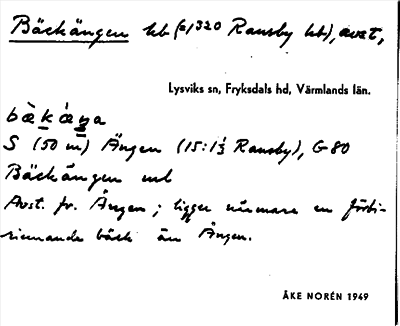 Bäckängen hb (=1320 Ransby hb), avst,
Lysviks sn, Fryksdals hd, Värmlands län.
bàkáŋa
S (50 m) Ängen (15:1⅓ Ransby), G 80
Bäckängen ml
Avst. fr. Ängen ; ligger närmare en förbi-
rinnande bäck än Ängen.
ÅKE NORÉN 1949